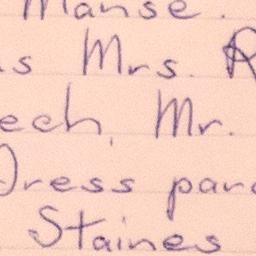 Manse.
s Mrs. R
ech, Mr.
Dress par
Staines